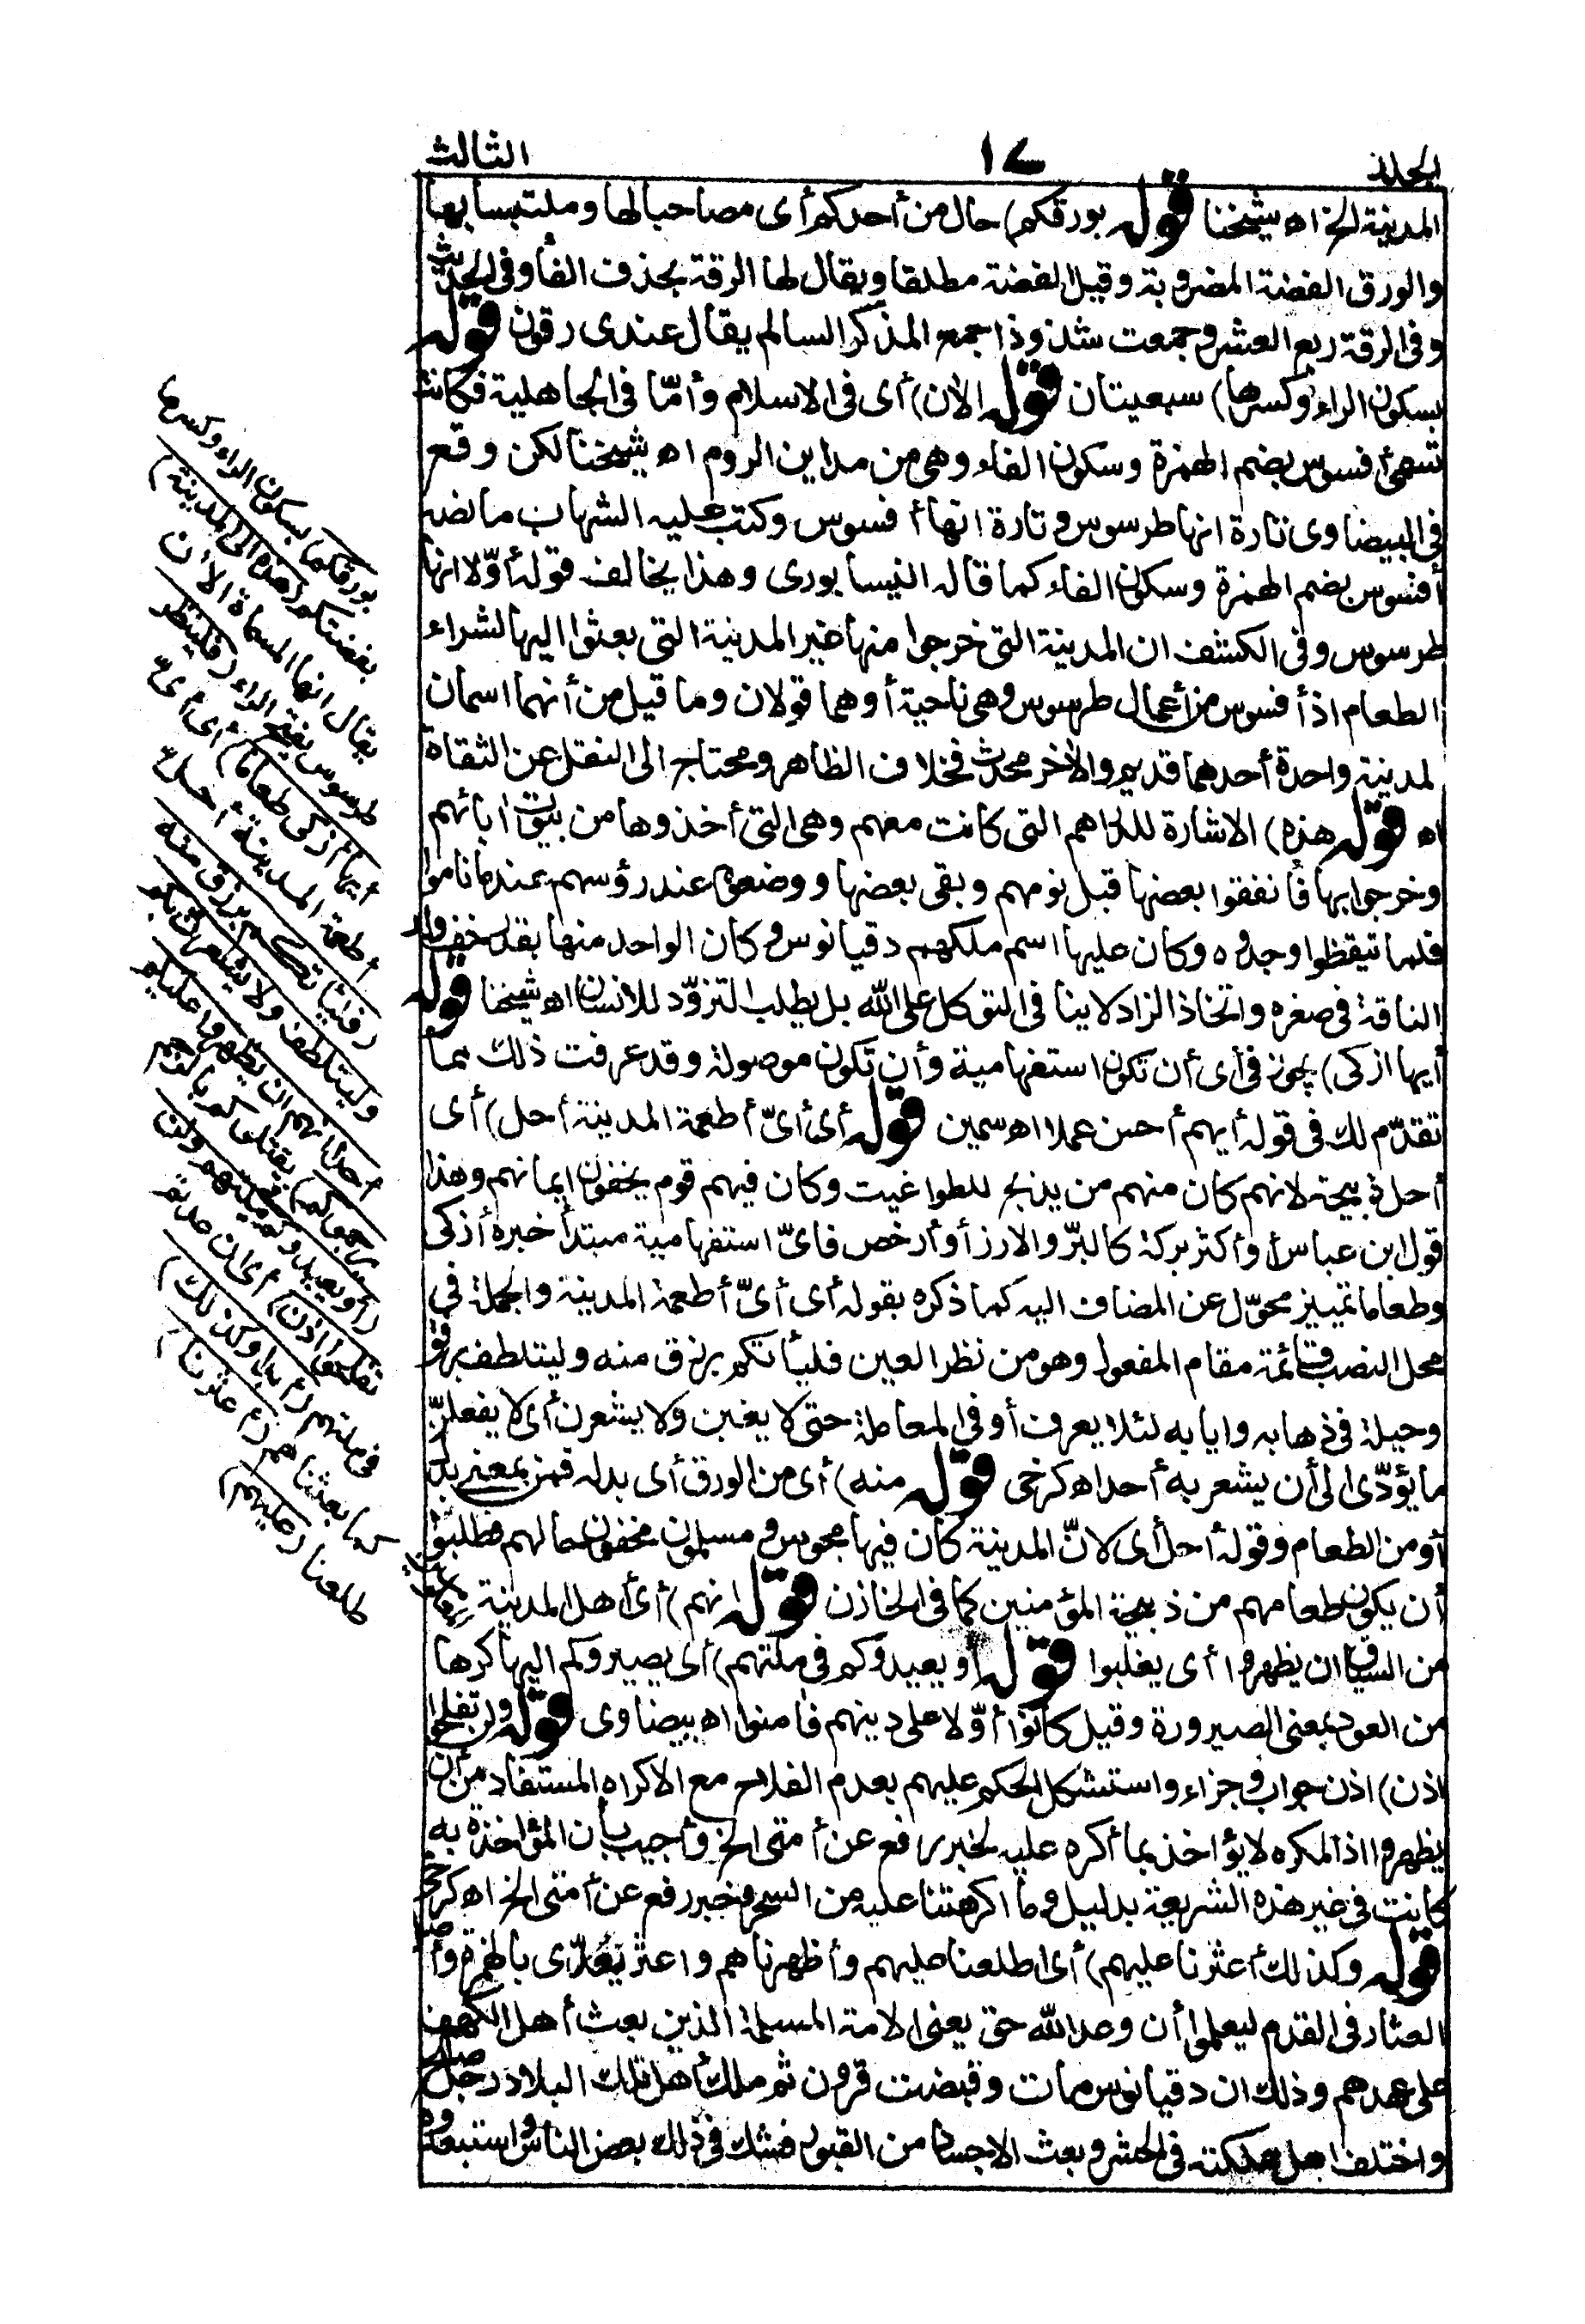 الجلد ١٧ الثالث
المدينة الخ اه شيخنا قوله بورقكم) حال من أحدكم أى مصاحبا لها وملتبسا بها
والورق الفضة المضروبة وقيل الفضة مطلقا ويقال لها الرقة بحذف الفاء وفى الحديث
وفى الرقة ربع العشر وجمعت شذوذا جمع المذكر السالم يقال عندى رقون قوله
بسكون الراء وكسرها) سبعيتان قوله الأن) أى فى الاسلام وأمّا فى الجاهلية فكانت
تسمى أفسوس بضم الهمزة وسكون الفاء وهى من مداين الروم اه شيخنا لكن وقع
فى البيضاوى تارة انها طرسوس وتارة انها أفسوس وكتب عليه الشهاب ما نصه
أفسوس بضم الهمزة وسكون الفاء كما قاله النيسابورى وهذا يخالف قوله أوّلا انها
طرسوس وفى الكشف ان المدينة التى خرجوا منها غير المدينة التى بعثوا اليها لشراء
الطعام اذ أفسوس من أعمال طرسوس وهى ناحية أو هما قولان وما قيل من أنهما اسمان
لمدينة واحدة أحدهما قديم والأخر محدث فخلاف الظاهر ومحتاج الى النقل عن الثقاة
اه قوله هذه) الاشارة للدراهم التى كانت معهم وهى التى أخذوها من بيوت ابائهم
وخرجوا بها فأنفقوا بعضها قبل نومهم وبقى بعضها ووضعوه عند رؤسهم عندما ناموا
فلما تيقظوا وجدوه وكان عليها اسم ملكهم دقيانوس وكان الواحد منها بقدر خف ولد
الناقة فى صغره واتخاذ الزاد لا ينافى التوكل على الله بل يطلب التزوّد للانسان اه شيخنا قوله
أيها ازكى) يجوز فى أى أن تكون استفهامية وأن تكون موصولة وقد عرفت ذلك مما
تقدّم لك فى قوله أيهم أحسن عملا اه سمين قوله أى أىّ أطعمة المدينة أحل) أى
أحل ذبيحة لانهم كان منهم من يذبح للطواغيت وكان فيهم قوم يخفون ايمانهم وهذا
قول ابن عباس أو أكثر بركة كالبرّ والارز أو أرخص فاىّ استفهامية مبتدأ خبره أزكى
وطعاما تمييز محوّل عن المضاف اليه كما ذكره بقوله أى أىّ أطعمة المدينة والجملة فى
محل النصب قائمة مقام المفعول وهو من نظر العين فليأتكم برزق منه وليتلطف برفق
وحيلة فى ذهابه وايابه لئلا يعرف أو فى المعاملة حتى لا يغبن ولا يشعرن أى لا يفعلنّ
ما يؤدّى الى أن يشعر به أحدا اه كرخى قوله منه) أى من الورق أى بدله فمن بمعنى بدل
أو من الطعام وقوله أحل أى لانّ المدينة كان فيها مجوس ومسلمون مخفون حالهم فطلبوا
أن يكون طعامهم من ذبيحة المؤمنين كما فى الخازن قوله انهم) أى أهل المدينة
من السياق ان يظهروا أى يغلبوا قوله أو يعيدوكم فى ملتهم) أى يصيروكم اليها كرها
من العود بمعنى الصيرورة وقيل كانوا أوّلا على دينهم فأمنوا اه بيضاوى قوله ولن تفلحوا
اذن) اذن جواب وجزاء واستشكل الحكم عليهم بعدم الفلاح مع الاكراه المستفاد من أن
يظهروا اذ المكره لا يؤاخذ بما أكره عليه لخبر رفع عن أمتى الخ وأجيب بأن المؤاخذة به
كانت فى غير هذه الشريعة بدليل وما اكرهتنا عليه من السحر وخبر رفع عن أمتى الخ اه كرخى
قوله وكذلك أعثرنا عليهم) أى اطلعنا عليهم وأظهرناهم واعثر يعدّى بالهمزة وأصل
العثار فى القدم ليعلموا أن وعد الله حق يعنى الامة المسلمة الذين بعث أهل الكهف
على عهدهم وذلك ان دقيانوس مات وقبضت قرون ثم ملك أهل تلك البلاد رجل صالح
واختلف اهل مملكته فى الحشر وبعث الاجساد من القبور فشك فى ذلك بعض الناس واستبعدوه
بورقكم) بسكون الراء وكسرها
بفضتكم (هذه الى المدينة)
يقال انها المسماة الأن
طرسوس بفتح الراء (فلينظر
أيها أزكى طعاما) أى أىّ
أطعمة المدينة أحلّ
(فليأتكم برزق منه
وليتلطف ولا يشعرن بكم
أحدا انهم ان يظهروا عليكم
يرجموكم) يقتلوكم بالرجم
(أو يعيدوكم فى ملتهم ولن
تفلحوا اذن) أى ان عدتم
فى ملتهم (أبدا وكذلك)
كما بعثناهم (أعثرنا)
اطلعنا (عليهم)